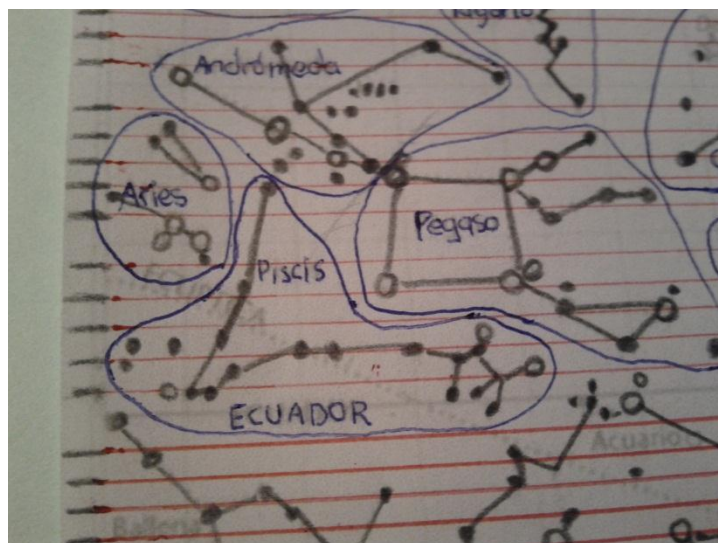 Lagarto
Andrómeda
Aries
Pegaso
Piscis
ECUADOR
Acuario
Ballena